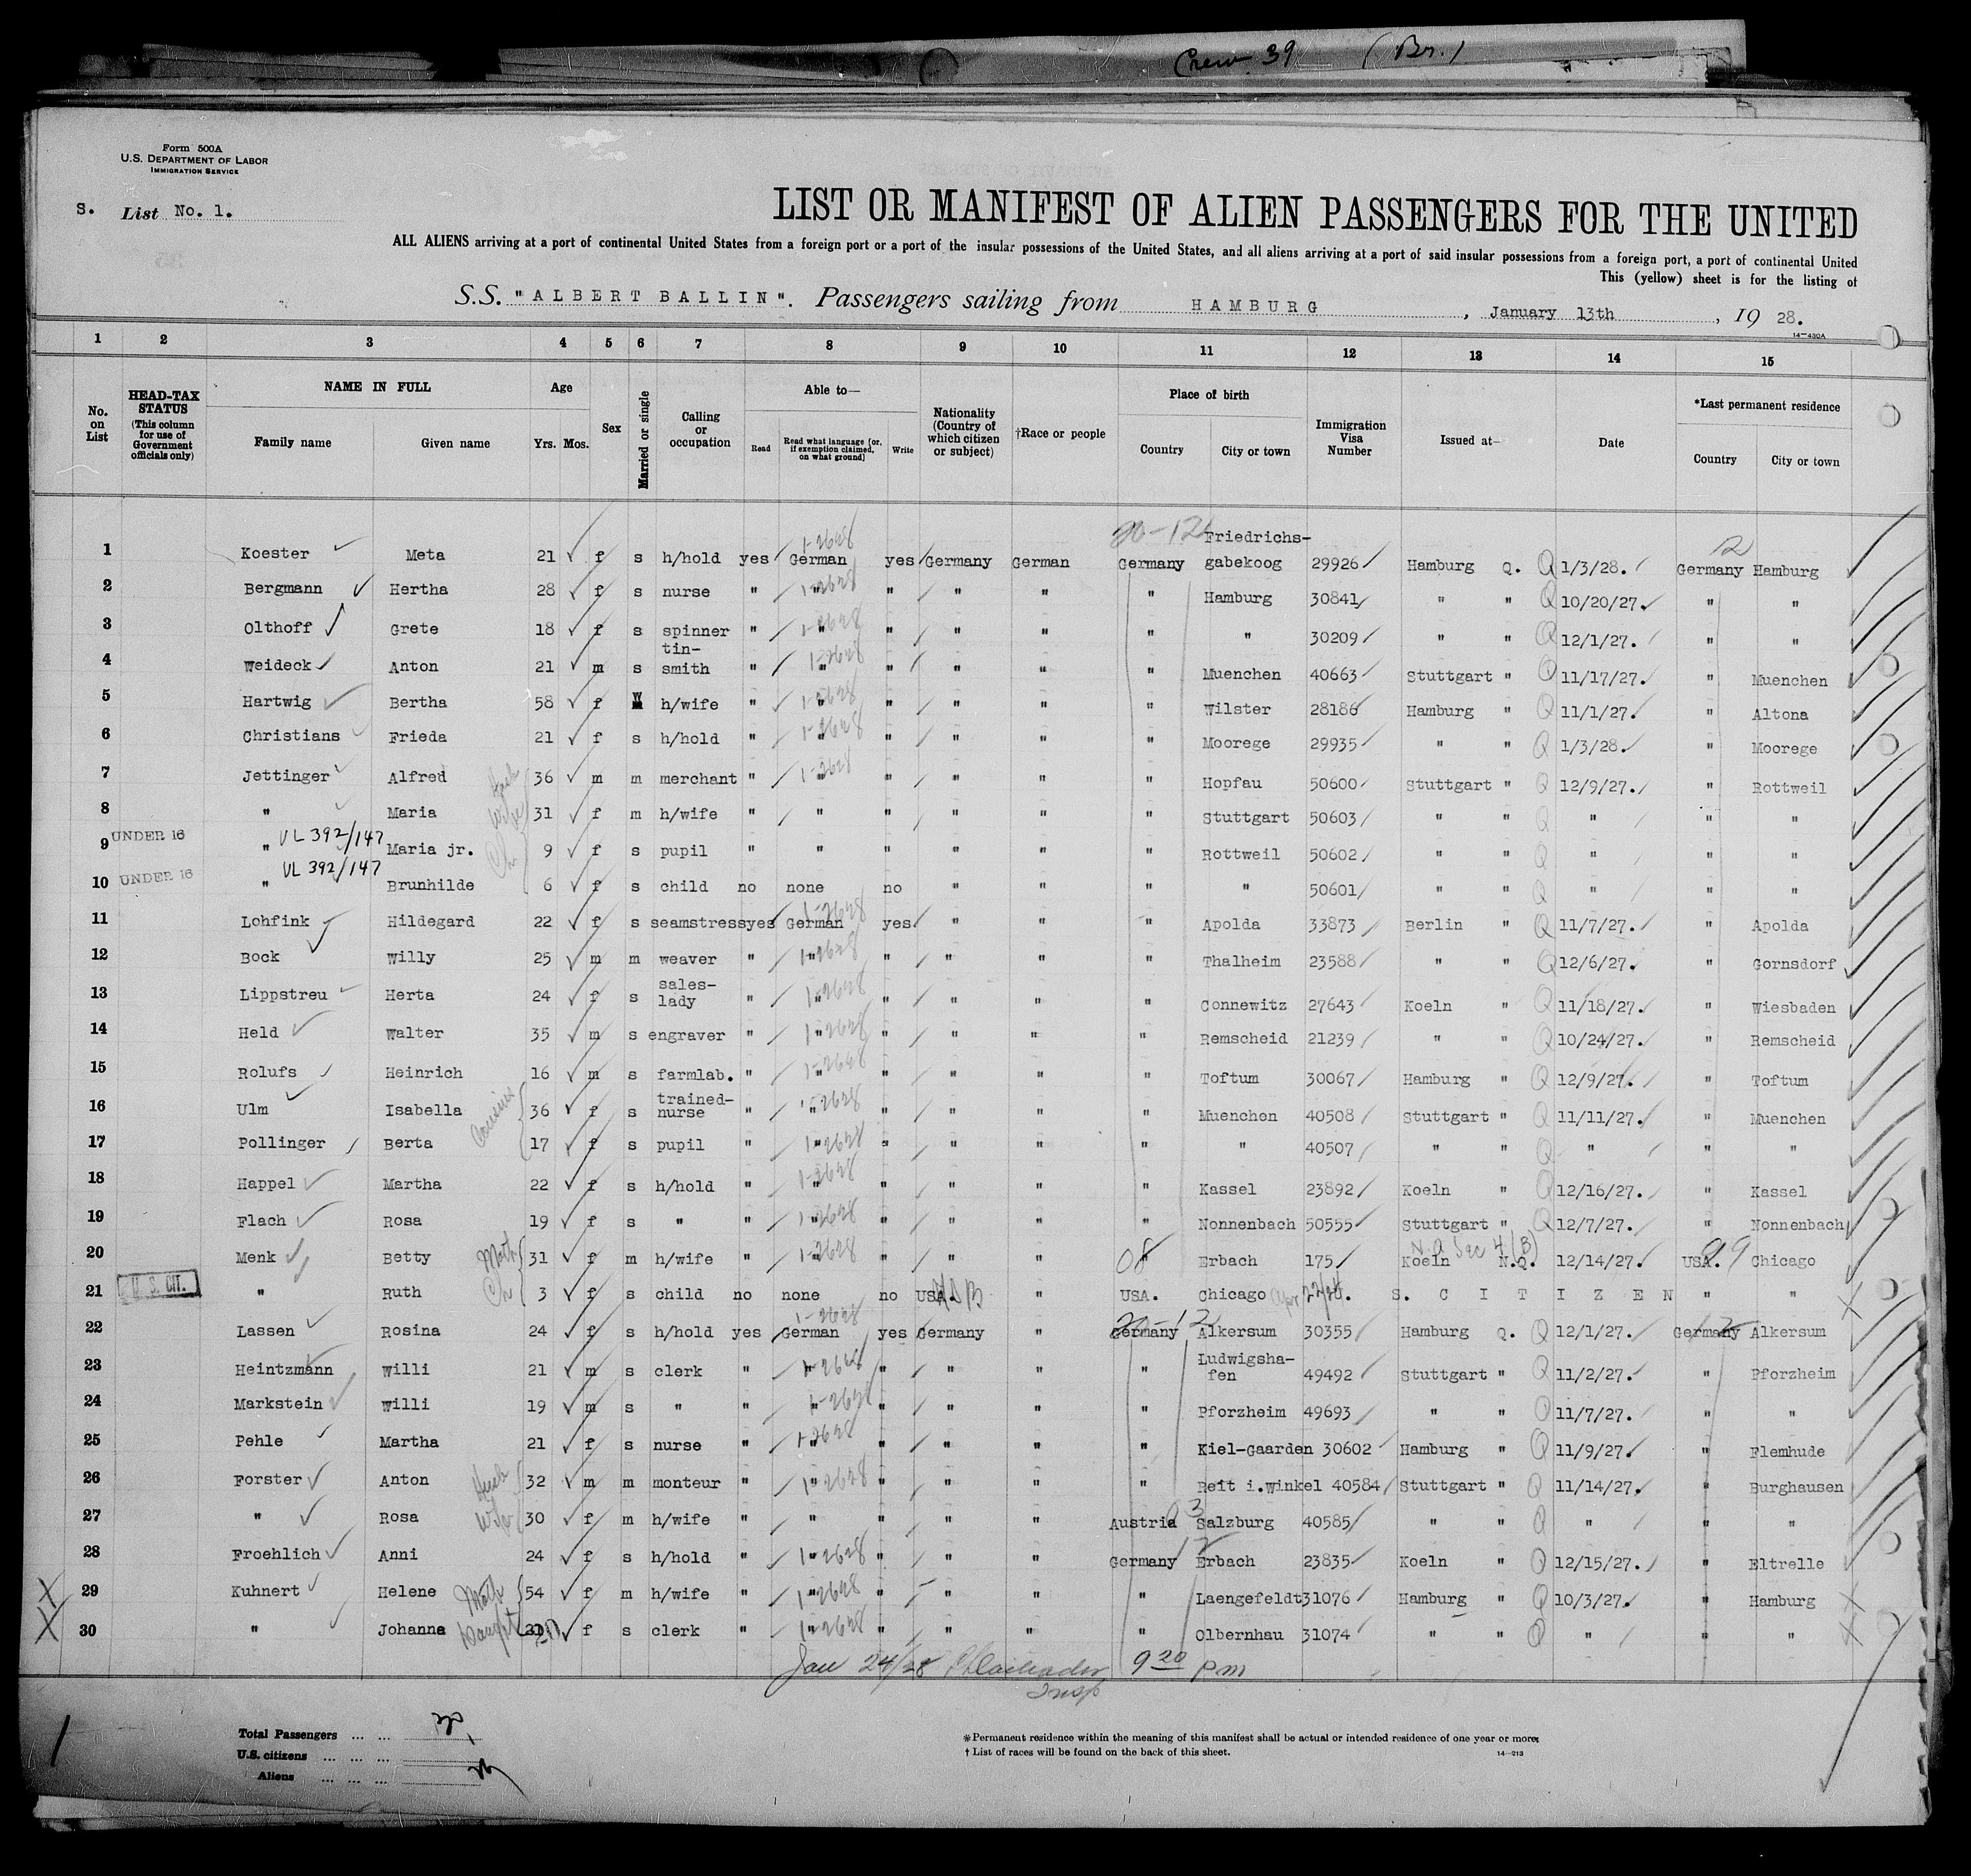 Crew 39 (Br.)
Form 500A
U.S. DEPARTMENT OF LABOR
IMMIGRATION SERVICE
S. List No. 1.
LIST OR MANIFEST OF ALIEN PASSENGERS FOR THE UNITED
ALL ALIENS arriving at a port of continental United States from a foreign port or a port of the insular possessions of the United States, and all aliens arriving at a port of said insular possessions from a foreign port, a port of continental United
This (yellow) sheet is for the listing of
S.S. "ALBERT BALLIN". Passengers sailing from HAMBURG, January 13th, 19 28.
14-430A
1 2 3 4 5 6 7 8 9 10 11 12 13 14 15
No. on List
HEAD-TAX STATUS (This column for use of Government officials only)
NAME IN FULL
Family name Given name
Age
Yrs. Mos.
Sex
Married or single
Calling or occupation
Able to—
Read
Read what language [or, if exemption claimed, on what ground]
Write
Nationality (Country of which citizen or subject)
†Race or people
Place of birth
Country City or town
Immigration Visa Number
Issued at—
Date
*Last permanent residence
Country City or town
1 Koester Meta 21 f s h/hold yes German yes Germany German Germany Friedrichs-gabekoog 29926 Hamburg Q. Q 1/3/28. Germany Hamburg
2 Bergmann Hertha 28 f s nurse " " " " " " Hamburg 30841 " " Q 10/20/27. " "
3 Olthoff Grete 18 f s spinner " " " " " " " 30209 " " Q 12/1/27. " "
4 Weideck Anton 21 m s tin-smith " " " " " " Muenchen 40663 Stuttgart " Q 11/17/27. " Muenchen
5 Hartwig Bertha 58 f W h/wife " " " " " " Wilster 28186 Hamburg " Q 11/1/27. " Altona
6 Christians Frieda 21 f s h/hold " " " " " " Moorege 29935 " " Q 1/3/28. " Moorege
7 Jettinger Alfred 36 m m merchant " " " " " " Hopfau 50600 Stuttgart " Q 12/9/27. " Rottweil
8 " Maria Wife 31 f m h/wife " " " " " " Stuttgart 50603 " " Q " " "
9 UNDER 16 " VL 392/147 Maria jr. Ch 9 f s pupil " " " " " " Rottweil 50602 " " Q " " "
10 UNDER 16 " VL 392/147 Brunhilde 6 f s child no none no " " " " 50601 " " Q " " "
11 Lohfink Hildegard 22 f s seamstress yes German yes " " " Apolda 33873 Berlin " Q 11/7/27. " Apolda
12 Bock Willy 25 m m weaver " " " " " " Thalheim 23588 " " Q 12/6/27. " Gornsdorf
13 Lippstreu Herta 24 f s sales-lady " " " " " " Connewitz 27643 Koeln " Q 11/18/27. " Wiesbaden
14 Held Walter 35 m s engraver " " " " " " Remscheid 21239 " " Q 10/24/27. " Remscheid
15 Rolufs Heinrich 16 m s farmlab. " " " " " " Toftum 30067 Hamburg " Q 12/9/27. " Toftum
16 Ulm Isabella 36 f s trained-nurse " " " " " " Muenchen 40508 Stuttgart " Q 11/11/27. " Muenchen
17 Pollinger Berta 17 f s pupil " " " " " " " 40507 " " Q " " "
18 Happel Martha 22 f s h/hold " " " " " " Kassel 23892 Koeln " Q 12/16/27. " Kassel
19 Flach Rosa 19 f s " " " " " " " Nonnenbach 50555 Stuttgart " Q 12/7/27. " Nonnenbach
20 Menk Betty Moth 31 f m h/wife " " " " " 08 " Erbach 175 Koeln N.Q. N.Q Sec 4 (B) 12/14/27. USA. 99 Chicago
21 U.S. CIT. " Ruth Ch 3 f s child no none no USA " USA. Chicago S. CITIZEN " "
22 Lassen Rosina 24 f s h/hold yes German yes Germany " Germany Alkersum 30355 Hamburg Q. Q 12/1/27. Germany Alkersum
23 Heintzmann Willi 21 m s clerk " " " " " " Ludwigsha-fen 49492 Stuttgart " Q 11/2/27. " Pforzheim
24 Markstein Willi 19 m s " " " " " " " Pforzheim 49693 " " Q 11/7/27. " "
25 Pehle Martha 21 f s nurse " " " " " " Kiel-Gaarden 30602 Hamburg " Q 11/9/27. " Flemhude
26 Forster Anton 32 m m monteur " " " " " " Reit i.Winkel 40584 Stuttgart " Q 11/14/27. " Burghausen
27 " Rosa Wife 30 f m h/wife " " " " " Austria 03 Salzburg 40585 " " Q " " "
28 Froehlich Anni 24 f s h/hold " " " " " Germany 12 Erbach 23835 Koeln " Q 12/15/27. " Eltrelle
29 Kuhnert Helene Moth 54 f m h/wife " " " " " " Laengefeldt 31076 Hamburg " Q 10/3/27. " Hamburg
30 " Johanna Daught f s clerk " " " " " " Olbernhau 31074 " " Q " " "
Jan 24/28 9 20 pm
Insp
Total Passengers
U.S. citizens
Aliens
*Permanent residence within the meaning of this manifest shall be actual or intended residence of one year or more.
† List of races will be found on the back of this sheet. 14-213